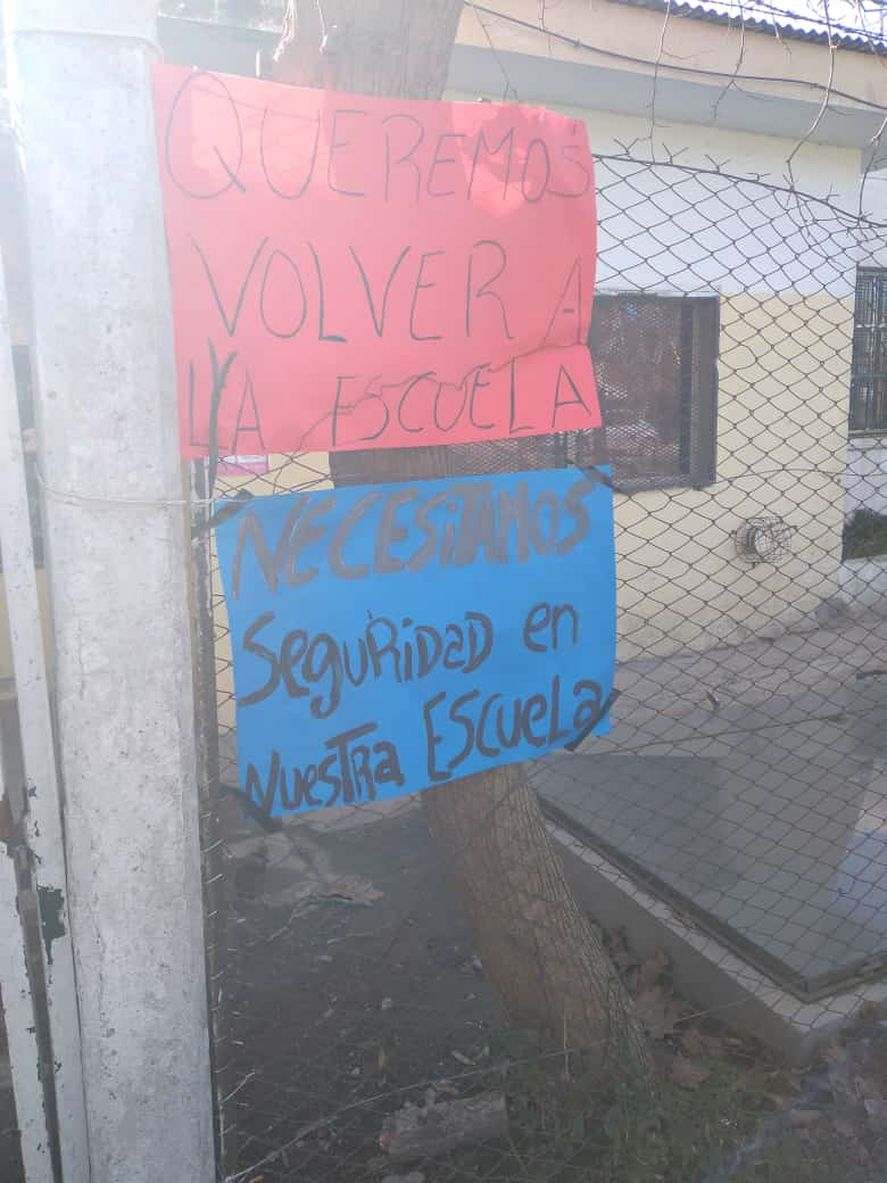 QUEREMOS
VOLVER A
LA ESCUELA
NECESITAMOS
SeguRiDaD en
NuesTRa EScueLa